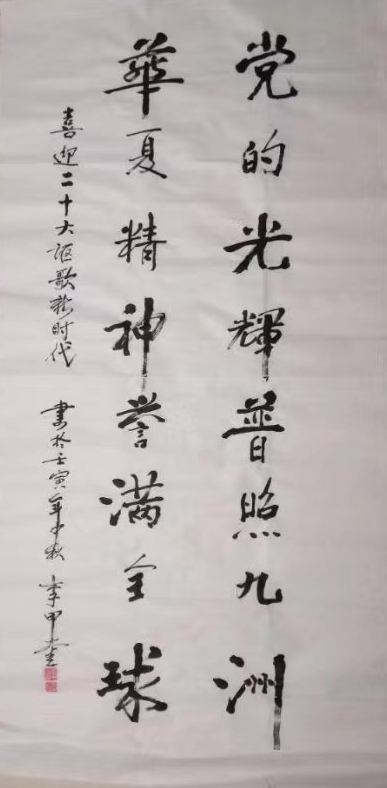 党的光輝普照九洲
華夏精神誉满全球
喜迎二十大讴歌新时代 書於壬寅年中秋 李甲奎